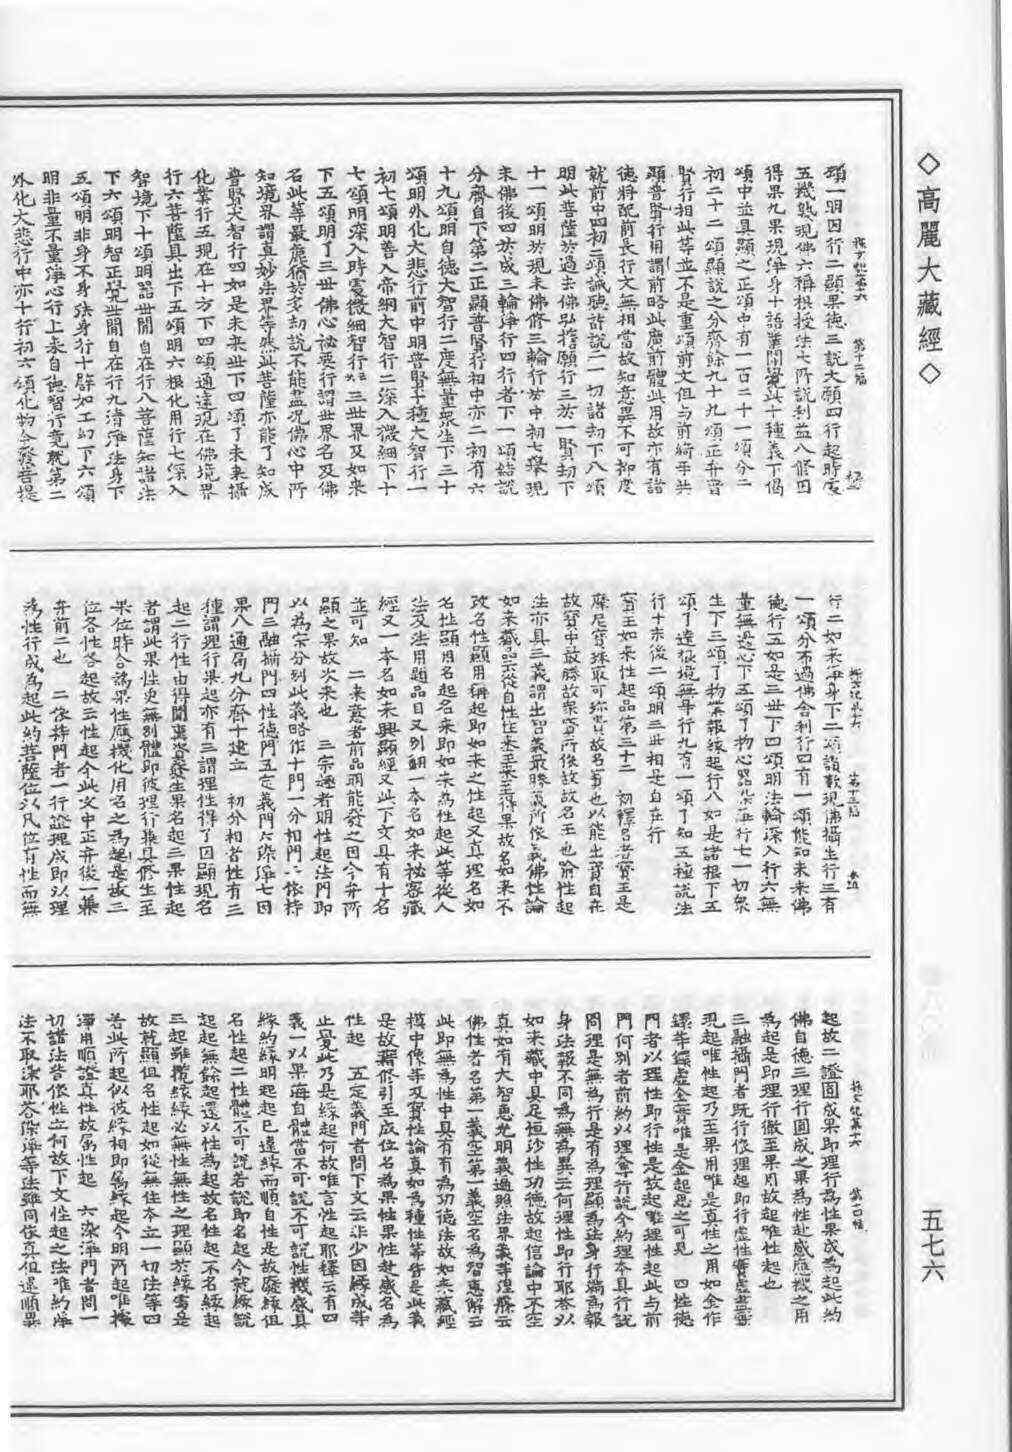 ◇高麗大藏經◇
五七六
探玄記卷十六　第十二張
頌一明因行二顯果德三說大願四行起時處
五機熟現佛六稱根授法七所說利益八修因
得果九果現淨身十語業開覺此十種義下偈
頌中並具顯之正頌中有一百二十一頌分二
初二十二頌顯說之分齊餘九十九頌正弁普
賢行相此等並不是重頌前文但与前綺乎共
顯普賢行用謂前略此廣前體此用故亦有諸
德將配前長行文無相當故知意異不可抑度
就前中四初二頌誡聽許說二一切諸劫下八頌
明此菩薩於過去佛弘擔願行三於一賢劫下
十一頌明於現未佛修三輪行於中初七舉現
未佛後四於成三輪淨行四行者下一頌結說
分齊自下第二正顯普賢行相中亦二初有六
十九頌明自德大智行二度無量眾生下三十
頌明外化大悲行前中明普賢十種大智行一
初七頌明善入帝網大智行二深入微細下十
七頌明深入時處微細智行三世界又如來
下五頌明了三世佛心祕要行謂世界名及佛
名此等最麁猶於多劫說不能盡況佛心中所
知境界謂真妙法界等然此菩薩亦能了知成
普賢大智行四如是未來世下四頌了未來攝
化業行五現在十方下四頌通達現在佛境界
行六菩薩具出下五頌明六根化用行七深入
智境下十頌明器世間自在行八菩薩知諸法
下六頌明智正覺世間自在行九清淨法身下
五頌明非身不身法身行十辟如工幻下六頌
明非量不量淨心行上來自德智行竟就第二
外化大悲行中亦十行初六頌化物令發菩提
探玄記卷十六　第十三張
行二如來淨身下二頌諸數現佛攝生行三有
一頌分布過佛舍利行四有一頌能知未來佛
德行五如是三世下四頌明法輪深入行六無
量無邊心下五頌了物心器染淨行七一切眾
生下三頌了物業報緣起行八如是諸根下五
頌了達根境無㝵行九有一頌了知五種說法
行十末後二頌明三世相是自在行
寶王如來性起品第三十二　初釋名者寶王是
摩尼寶珠取可珎貴故名寶也以能出寶自在
故寶中最勝故眾寶所依故故名王也喻性起
法亦具三義謂出智義最勝義所依義佛性論
如來藏品云從自性住來至至得果故名如來不
改名性顯用稱起即如來之性起又真理名如
名性顯用名起名來即如來為性起此等從人
法及法用題品目又別翻一本名如來祕密藏
經又一本名如來興顯經又此下文具有十名
並可知　二來意者前品明能發之因今弁所
顯之果故次來也　三宗趣者明性起法門即
以為宗分別此義略作十門一分相門二依持
門三融攝門四性德門五定義門六染淨七因
果八通局九分齊十建立　初分相者性有三
種謂理行果起亦有三謂理性得了因顯現名
起二行性由得聞熏資發生果名起三果性起
者謂此果性更無別體即彼理行兼具修生至
果位時合為果性應機化用名之為起是故三
位各性各起故云性起今此文中正弁後一兼
弁前二也　二依持門者一行證理成即以理
為性行成為起此約菩薩位以凡位有性而無
探玄記卷十六　第十四張
起故二證圓成果即理行為性果成為起此約
佛自德三理行圓成之果為性赴感應機之用
為起是即理行徹至果用故起唯性起也
三融攝門者既行依理起即行虛性實虛盡實
現起唯性起乃至果用唯是真性之用如金作
鐶等鐶虛金實唯是金起思之可見　四性德
門者以理性即行性是故起唯理性起此与前
門何別者前約以理奪行說今約理本具行說
問理是無為行是有為理顯為法身行滿為報
身法報不同為無為異云何理性即行耶荅以
如來藏中具足恒沙性功德故起信論中不空
真如有大智慧光明義遍照法界義等涅槃云
佛性者名第一義空第一義空名為智慧解云
此即無為性中具有有為功德法故如來藏經
摸中像等及寶性論真如為種性等皆是此義
是故藉修引至成位名為果性果性赴感名為
性起　五定義門者問下文云非少因緣成等
正覺此乃是緣起何故唯言性起耶釋云有四
義一以果海自體當不可說不可說性機感具
緣約緣明起起已違緣而順自性是故廢緣但
名性起二性體不可說若說即名起今就緣說
起起無餘起還以性為起故名性起不名緣起
三起雖攬緣緣必無性無性之理顯於緣處是
故就顯但名性起如從無住本立一切法等四
若此所起似彼緣相即屬緣起今明所起唯據
淨用順證真性故屬性起　六染淨門者問一
切諸法皆依性立何故下文性起之法唯約淨
法不取染耶荅染淨等法雖同依真但違順異